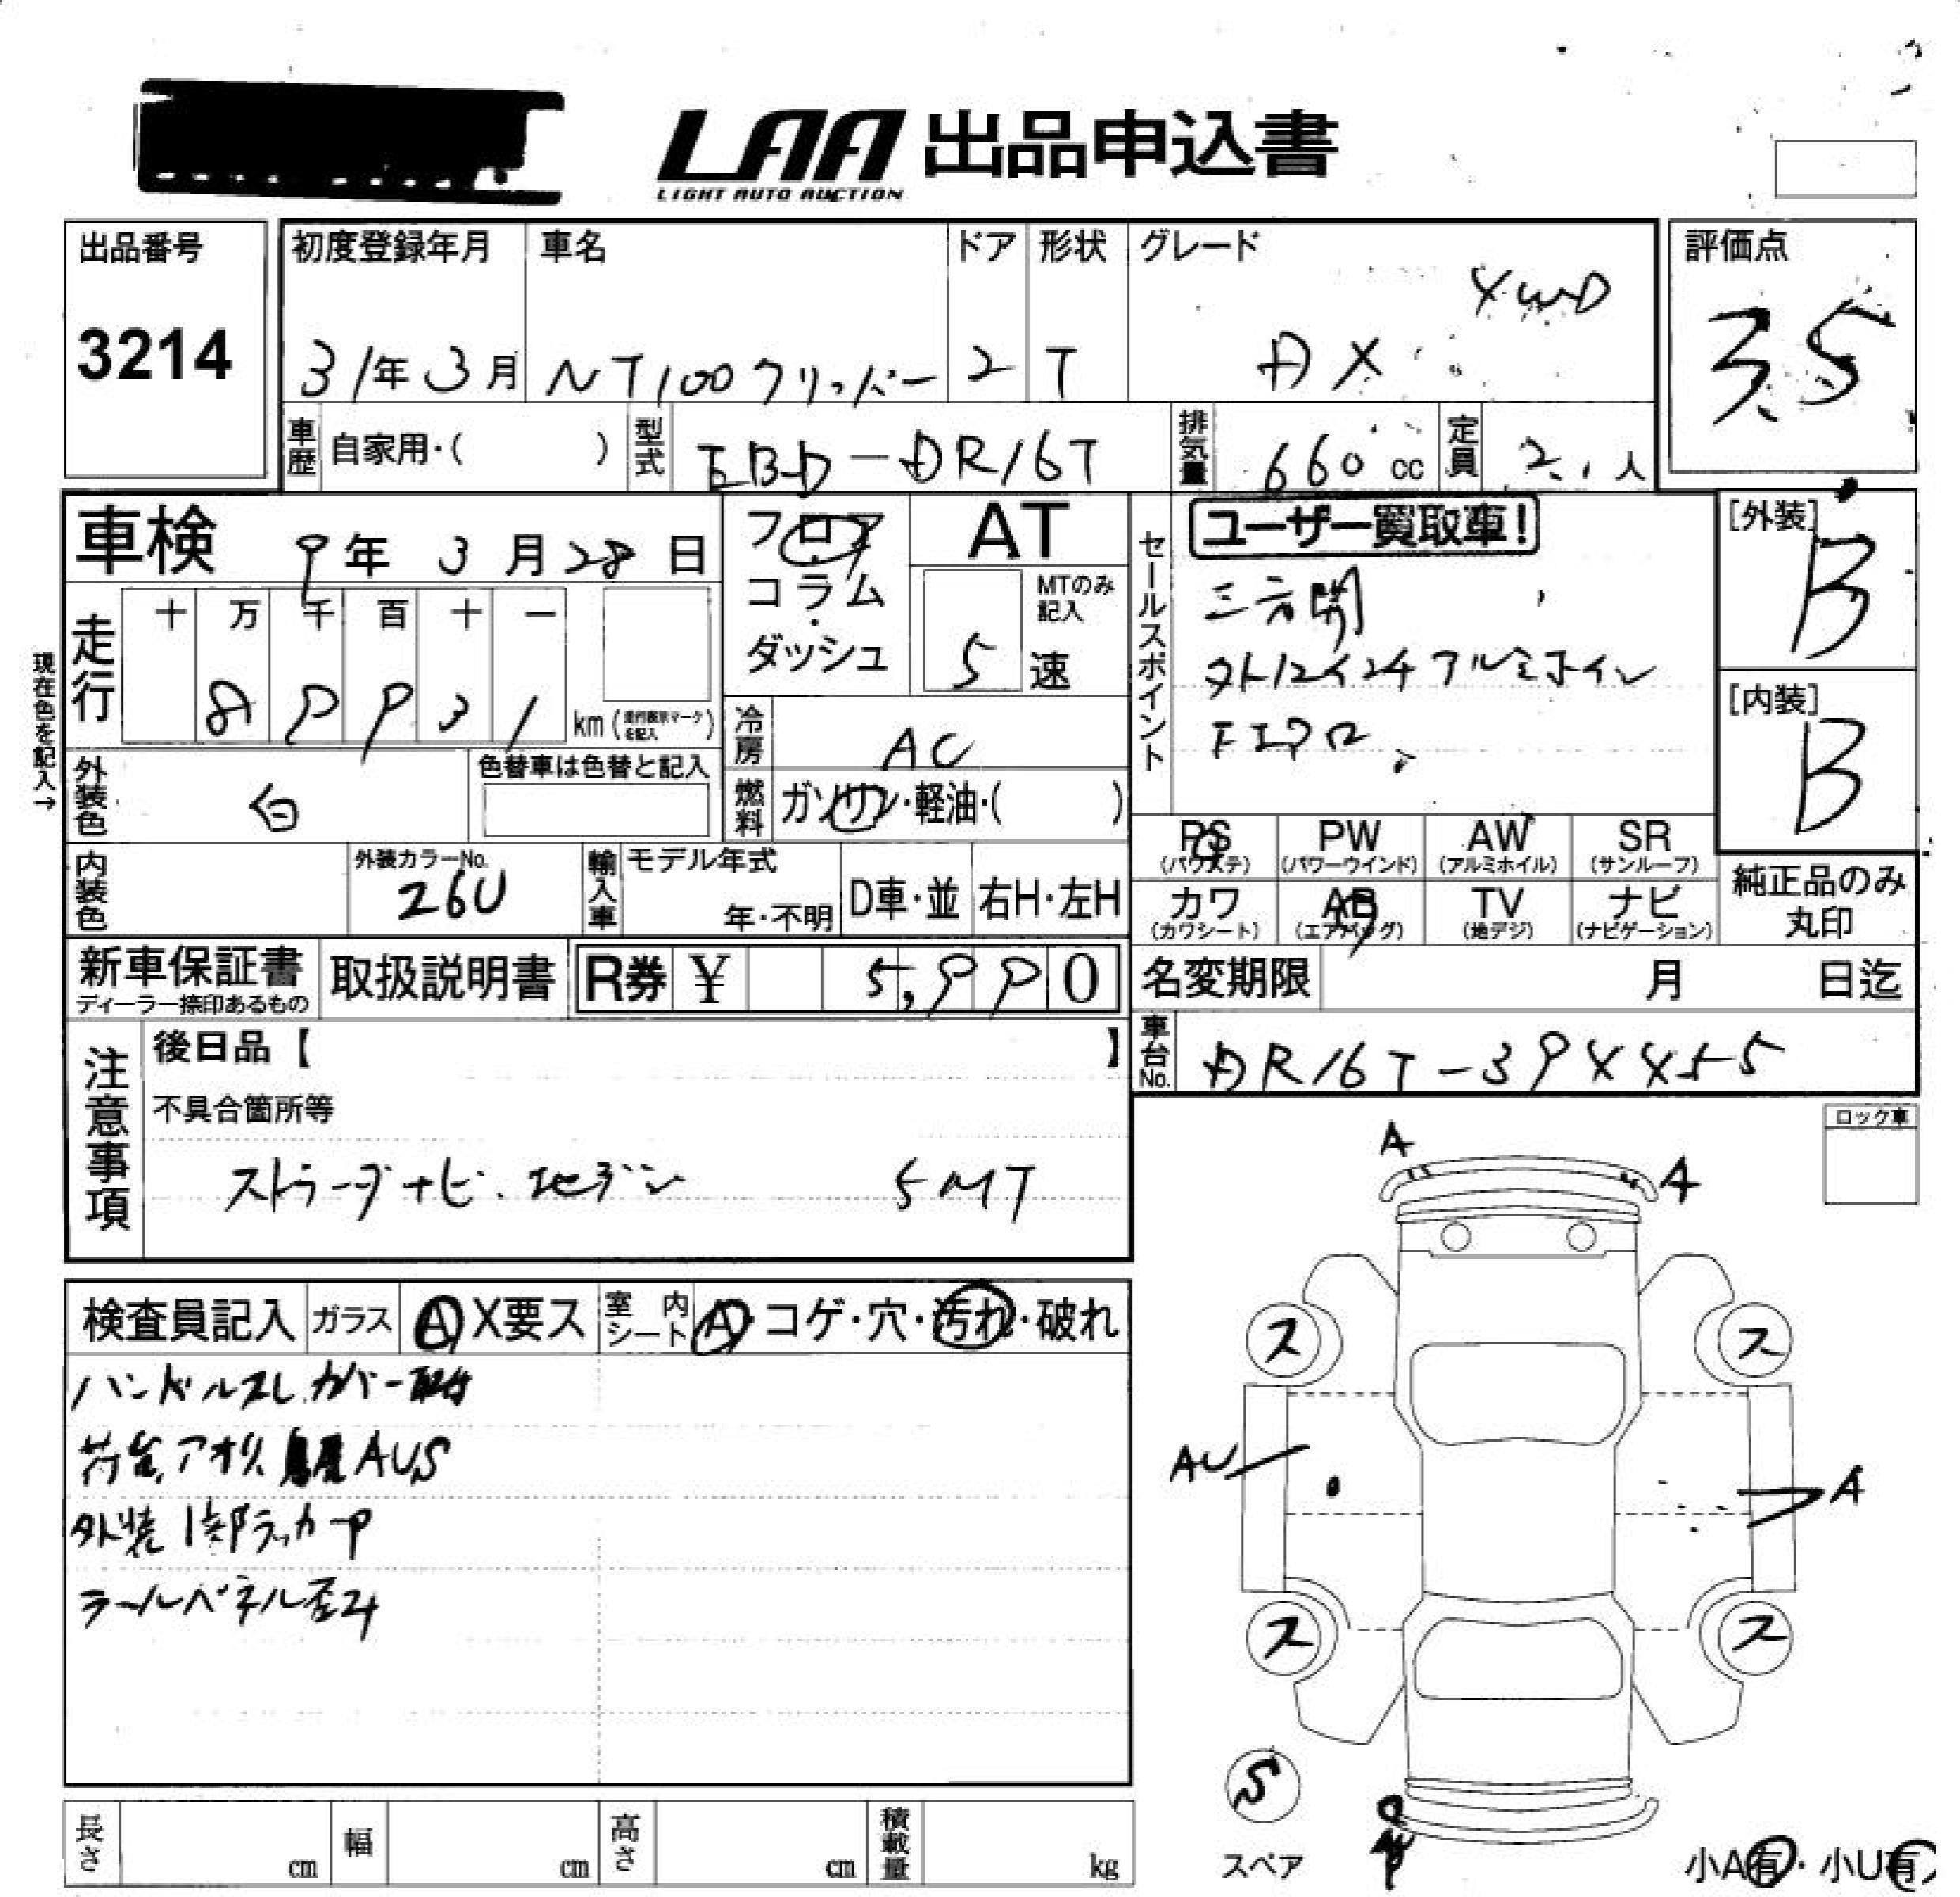 LAA 出品申込書
LIGHT AUTO AUCTION
出品番号
3214
初度登録年月
31年 3月
車名
NT100クリッパー
ドア
2
形状
T
グレード
4WD
DX
評価点
3.5
車歴 自家用・( )
型式 EBD-DR16T
排気量 660 cc
定員 2 人
車検 9年 3月 28日
フロア
コラム
ダッシュ
AT
MTのみ記入
5 速
走行 十 万 千 百 十 一
8 9 9 3 1 km (走行表示マークを記入)
現在色を記入→
外装色 白
色替車は色替と記入
冷房 AC
燃料 ガソリン・軽油・( )
内装色
外装カラーNo.
26U
輸入車 モデル年式
年・不明
D車・並
右H・左H
新車保証書
ディーラー捺印あるもの
取扱説明書
R券 ¥ 5,990
セールスポイント
ユーザー買取車!
三方開
アルミホイル
[外装]
B
[内装]
B
PS (パワステ)
PW (パワーウインド)
AW (アルミホイル)
SR (サンルーフ)
カワ (カワシート)
AB (エアバッグ)
TV (地デジ)
ナビ (ナビゲーション)
純正品のみ
丸印
名変期限 月 日迄
車台No. DR16T-394455
注意事項
後日品【 】
不具合箇所等
ストラーダナビ、地デジ 5MT
ロック車
検査員記入 ガラス A X要ス 室内シート A・コゲ・穴・汚れ・破れ
ハンドルスレ カバー取付
荷台、アオリ AUS
外装1部タッカーP
A
A
ス
ス
AU
A
ス
ス
S
スペア
小A有・小U有
長さ cm
幅 cm
高さ cm
積載量 kg